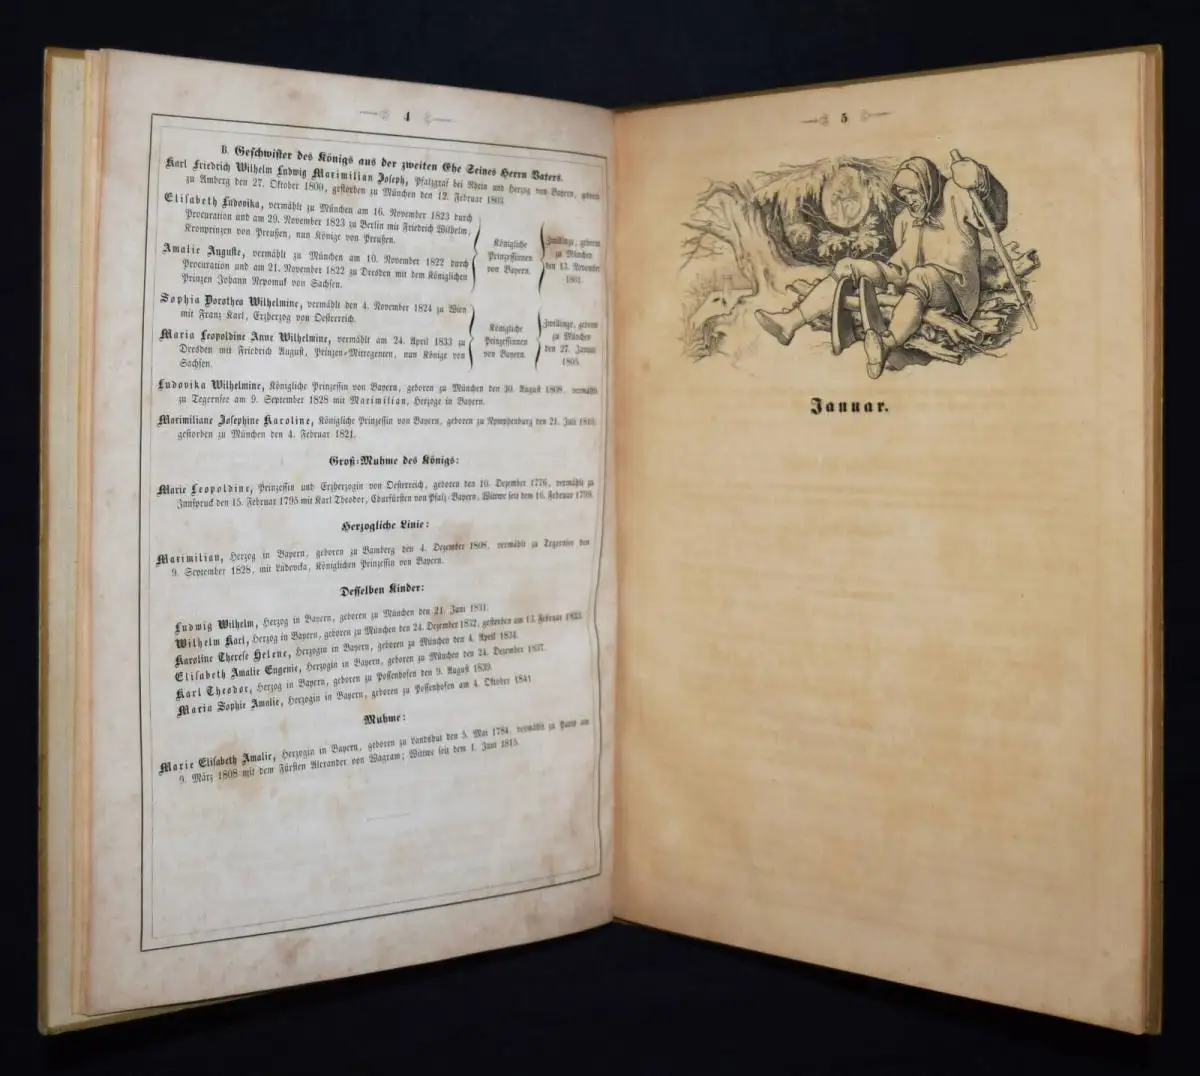 4
B. Geschwister des Königs aus der zweiten Ehe Seines Herrn Vaters.
Karl Friedrich Wilhelm Ludwig Maximilian Joseph, Pfalzgraf bei Rhein und Herzog von Bayern, geboren
zu Amberg den 27. Oktober 1800, gestorben zu München den 12. Februar 1803.
Elisabeth Ludovika, vermählt zu München am 16. November 1823 durch
Procuration und am 29. November 1823 zu Berlin mit Friedrich Wilhelm,
Kronprinzen von Preußen, nun Könige von Preußen.
Amalie Auguste, vermählt zu München am 10. November 1822 durch
Procuration und am 21. November 1822 zu Dresden mit dem Königlichen
Prinzen Johann Nepomuk von Sachsen.
Königliche
Prinzessinnen
von Bayern.
Zwillinge, geboren
zu München
den 13. November
1801.
Sophia Dorothea Wilhelmine, vermählt den 4. November 1824 zu Wien
mit Franz Karl, Erzherzog von Oesterreich.
Maria Leopoldine Anne Wilhelmine, vermählt am 24. April 1833 zu
Dresden mit Friedrich August, Prinzen-Mitregenten, nun Könige von
Sachsen.
Königliche
Prinzessinnen
von Bayern.
Zwillinge, geboren
zu München
den 27. Januar
1805.
Ludovika Wilhelmine, Königliche Prinzessin von Bayern, geboren zu München den 30. August 1808, vermählt
zu Tegernsee am 9. September 1828 mit Maximilian, Herzoge in Bayern.
Maximiliane Josephine Karoline, Königliche Prinzessin von Bayern, geboren zu Nymphenburg den 21. Juli 1810,
gestorben zu München den 4. Februar 1821.
Groß-Muhme des Königs:
Marie Leopoldine, Prinzessin und Erzherzogin von Oesterreich, geboren den 10. Dezember 1776, vermählt zu
Innspruck den 15. Februar 1795 mit Karl Theodor, Churfürsten von Pfalz-Bayern, Wittwe seit dem 16. Februar 1799.
Herzogliche Linie:
Maximilian, Herzog in Bayern, geboren zu Bamberg den 4. Dezember 1808, vermählt zu Tegernsee den
9. September 1828, mit Ludovika, Königlichen Prinzessin von Bayern.
Desselben Kinder:
Ludwig Wilhelm, Herzog in Bayern, geboren zu München den 21. Juni 1831.
Wilhelm Karl, Herzog in Bayern, geboren zu München den 24. Dezember 1832, gestorben am 13. Februar 1833.
Karoline Therese Helene, Herzogin in Bayern, geboren zu München den 4. April 1834.
Elisabeth Amalie Eugenie, Herzogin in Bayern, geboren zu München den 24. Dezember 1837.
Karl Theodor, Herzog in Bayern, geboren zu Possenhofen den 9. August 1839.
Maria Sophie Amalie, Herzogin in Bayern, geboren zu Possenhofen am 4. Oktober 1841
Muhme:
Marie Elisabeth Amalie, Herzogin in Bayern, geboren zu Landshut den 5. Mai 1784, vermählt zu Paris am
9. März 1808 mit dem Fürsten Alexander von Wagram; Wittwe seit dem 1. Juni 1815.
5
Januar.